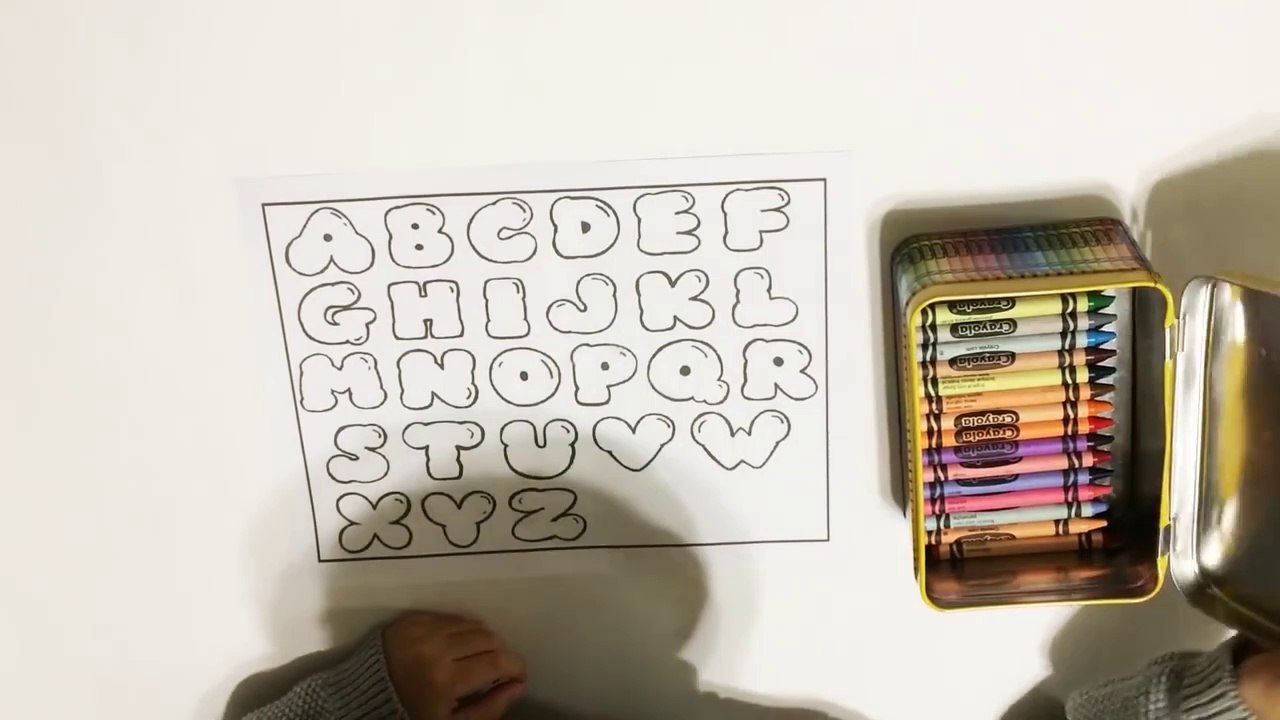 A B C D E F
G H I J K L
M N O P Q R
S T U V W
X Y Z
Crayola
Crayola
Crayola
Crayola
Crayola
Crayola
Crayola
Crayola